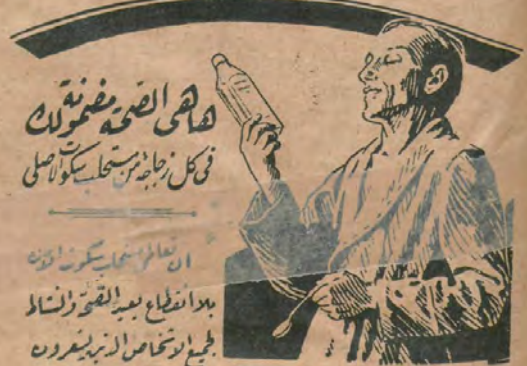 ها هى الصحة مضمونة لك
فى كل زجاجة من مستحلب سكوت الأصلى
ان تعاطى مستحلب سكوت
بلا انقطاع يعيد الصحة والنشاط
لجميع الاشخاص الذين يشعرون